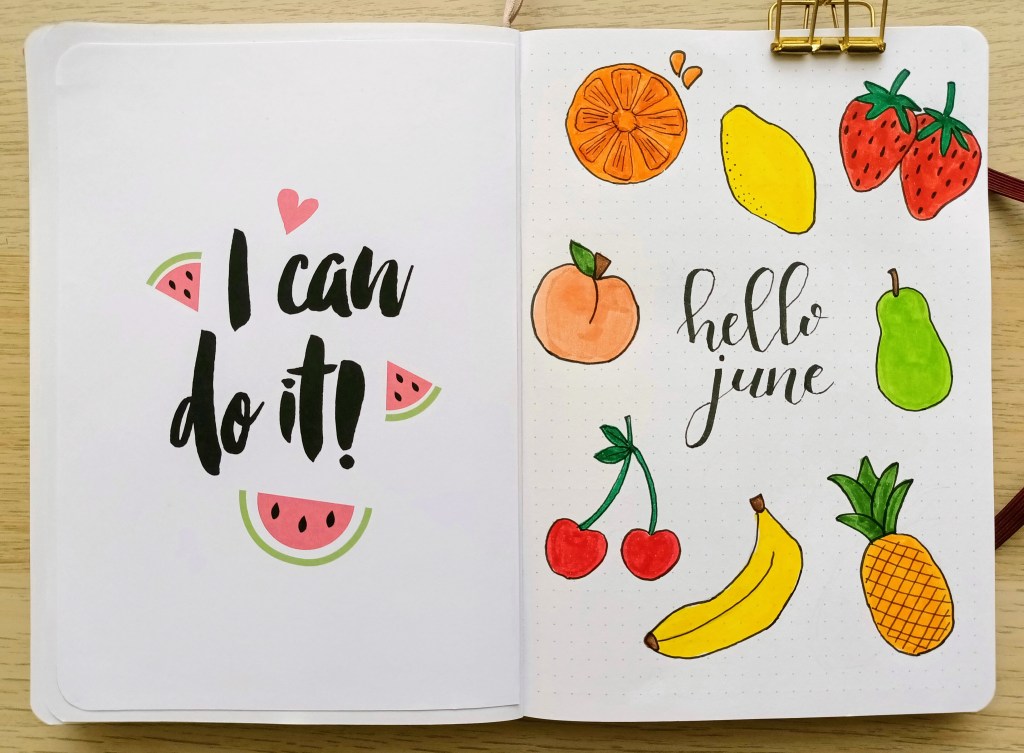 I can
do it!
hello
june